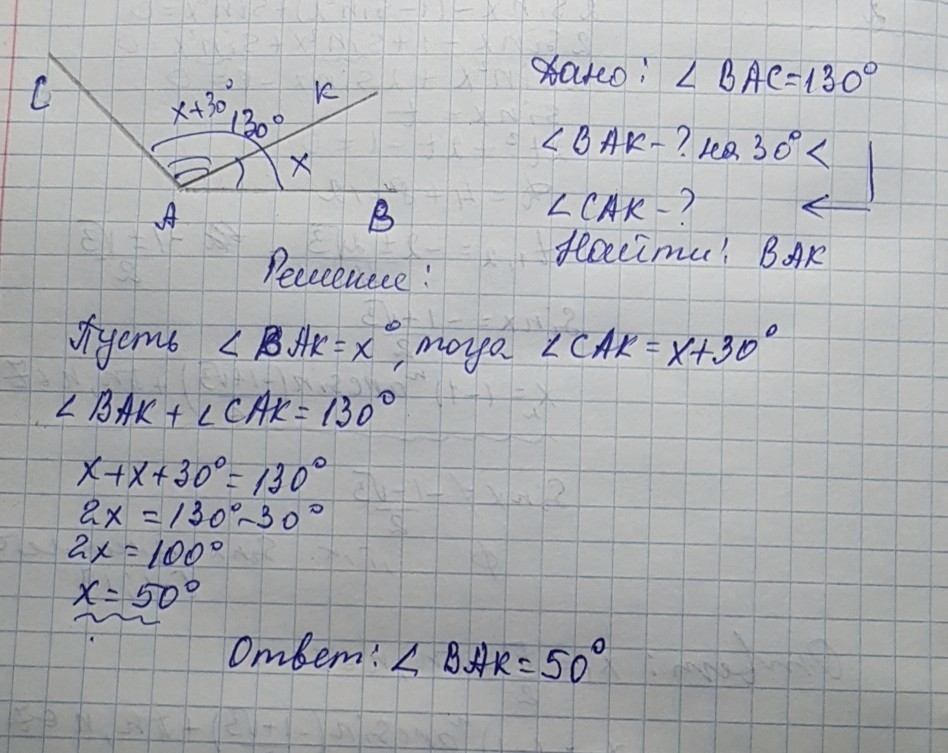 C
x+30°
130°
K
x
A
B
Дано: ∠ BAC=130°
∠BAK-? на 30°<
∠CAK-?
Найти: BAK
Решение:
Пусть ∠ BAK=x°, тогда ∠CAK=x+30°
∠ BAK + ∠ CAK=130°
x+x+30°=130°
2x=130°-30°
2x=100°
x=50°
Ответ: ∠ BAK=50°